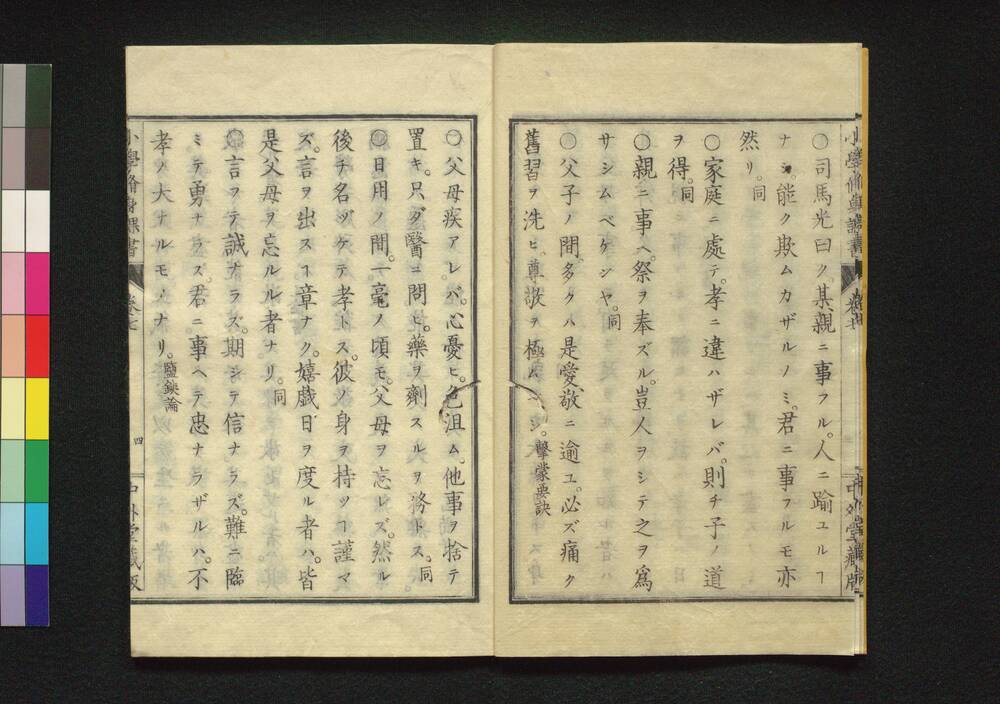 ○司馬光曰ク。其親ニ事フル。人ニ踰ユルヿ
ナシ。能ク欺ムカザルノミ。君ニ事フルモ亦
然リ。同
○家庭ニ處テ。孝ニ違ハザレバ。則チ子ノ道
ヲ得。同
○親ニ事ヘ。祭ヲ奉ズル。豈人ヲシテ之ヲ爲
サシムベケンヤ。同
○父子ノ間。多クハ是愛。敬ニ逾ユ。必ズ痛ク
舊習ヲ洗ヒ。尊敬ヲ極ムベシ。擊蒙要訣
○父母疾アレバ。心憂ヒ。色沮ム。他事ヲ捨テ
置キ。只ダ醫ニ問ヒ。藥ヲ劑スルヲ務トス。同
○日用ノ間。一毫ノ頃モ。父母ヲ忘レズ。然ル
後チ名ヅケテ孝トス。彼ノ身ヲ持ツヿ謹マ
ズ。言ヲ出スヿ章ナク。嬉戯日ヲ度ル者ハ。皆
是父母ヲ忘ルル者ナリ。同
○言フテ誠ナラズ。期シテ信ナラズ。難ニ臨
ミテ勇ナラズ。君ニ事ヘテ忠ナラザルハ。不
孝ノ大ナルモノナリ。鹽鐵論
小學脩身課書
卷七
四
中外堂藏版